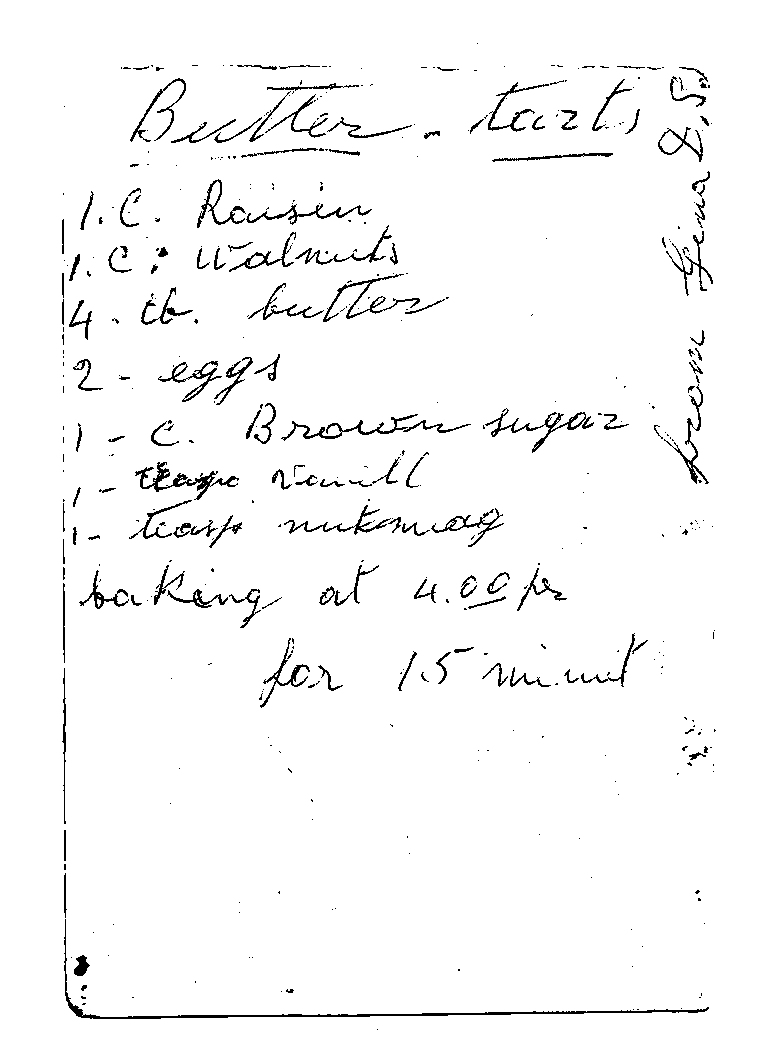 Butter - tarts
1. C. Raisin
1. C. Walnuts
4. tb. butter
2 - eggs
1 - c. Brown sugar
1 - teasp vanill
1 - teasp nutkmeag
baking at 4.00
for 15 minut
from Gina D.S.